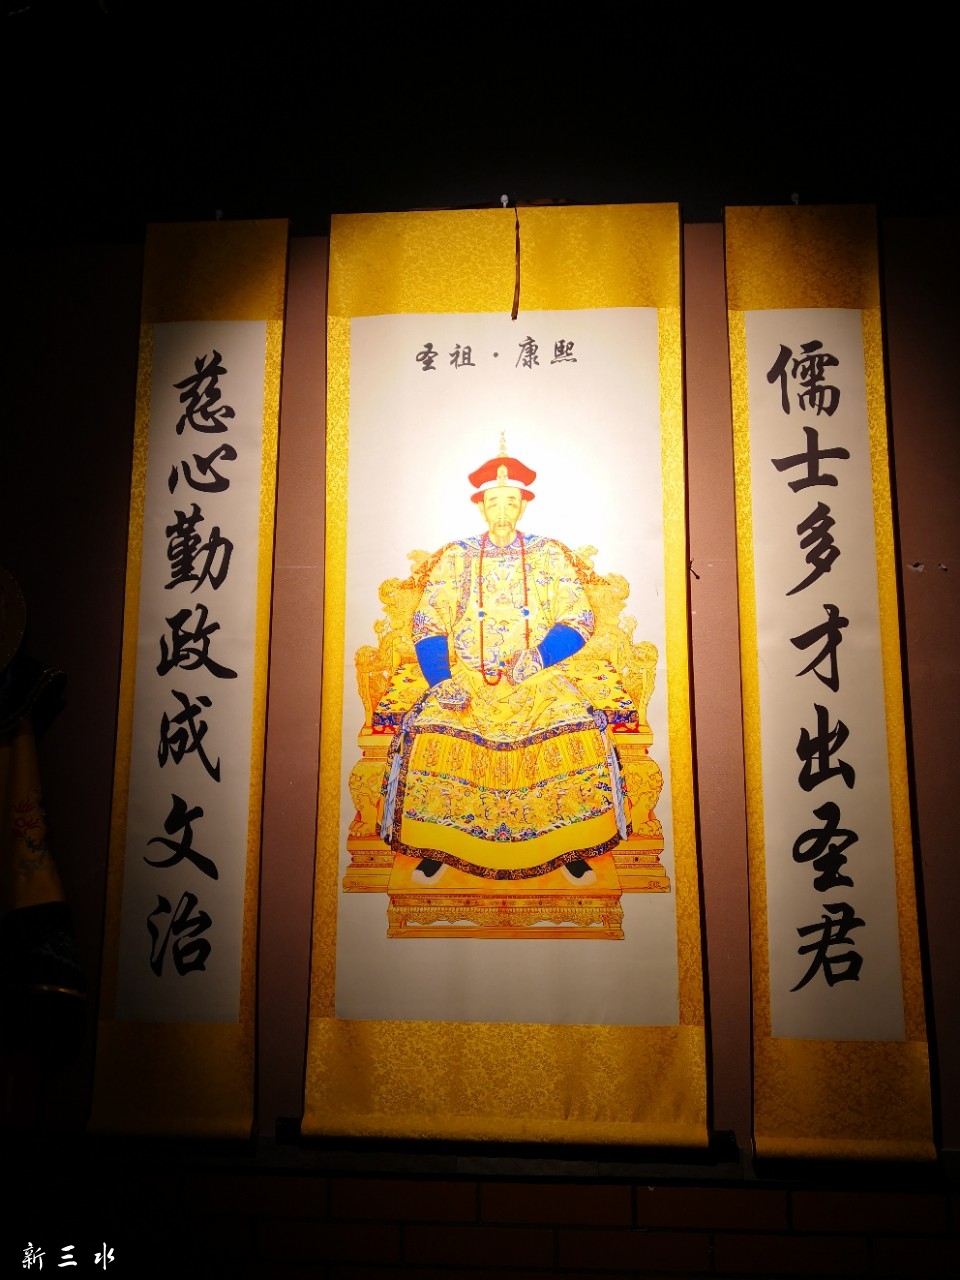 圣祖·康熙
儒士多才出圣君
慈心勤政成文治
新三水